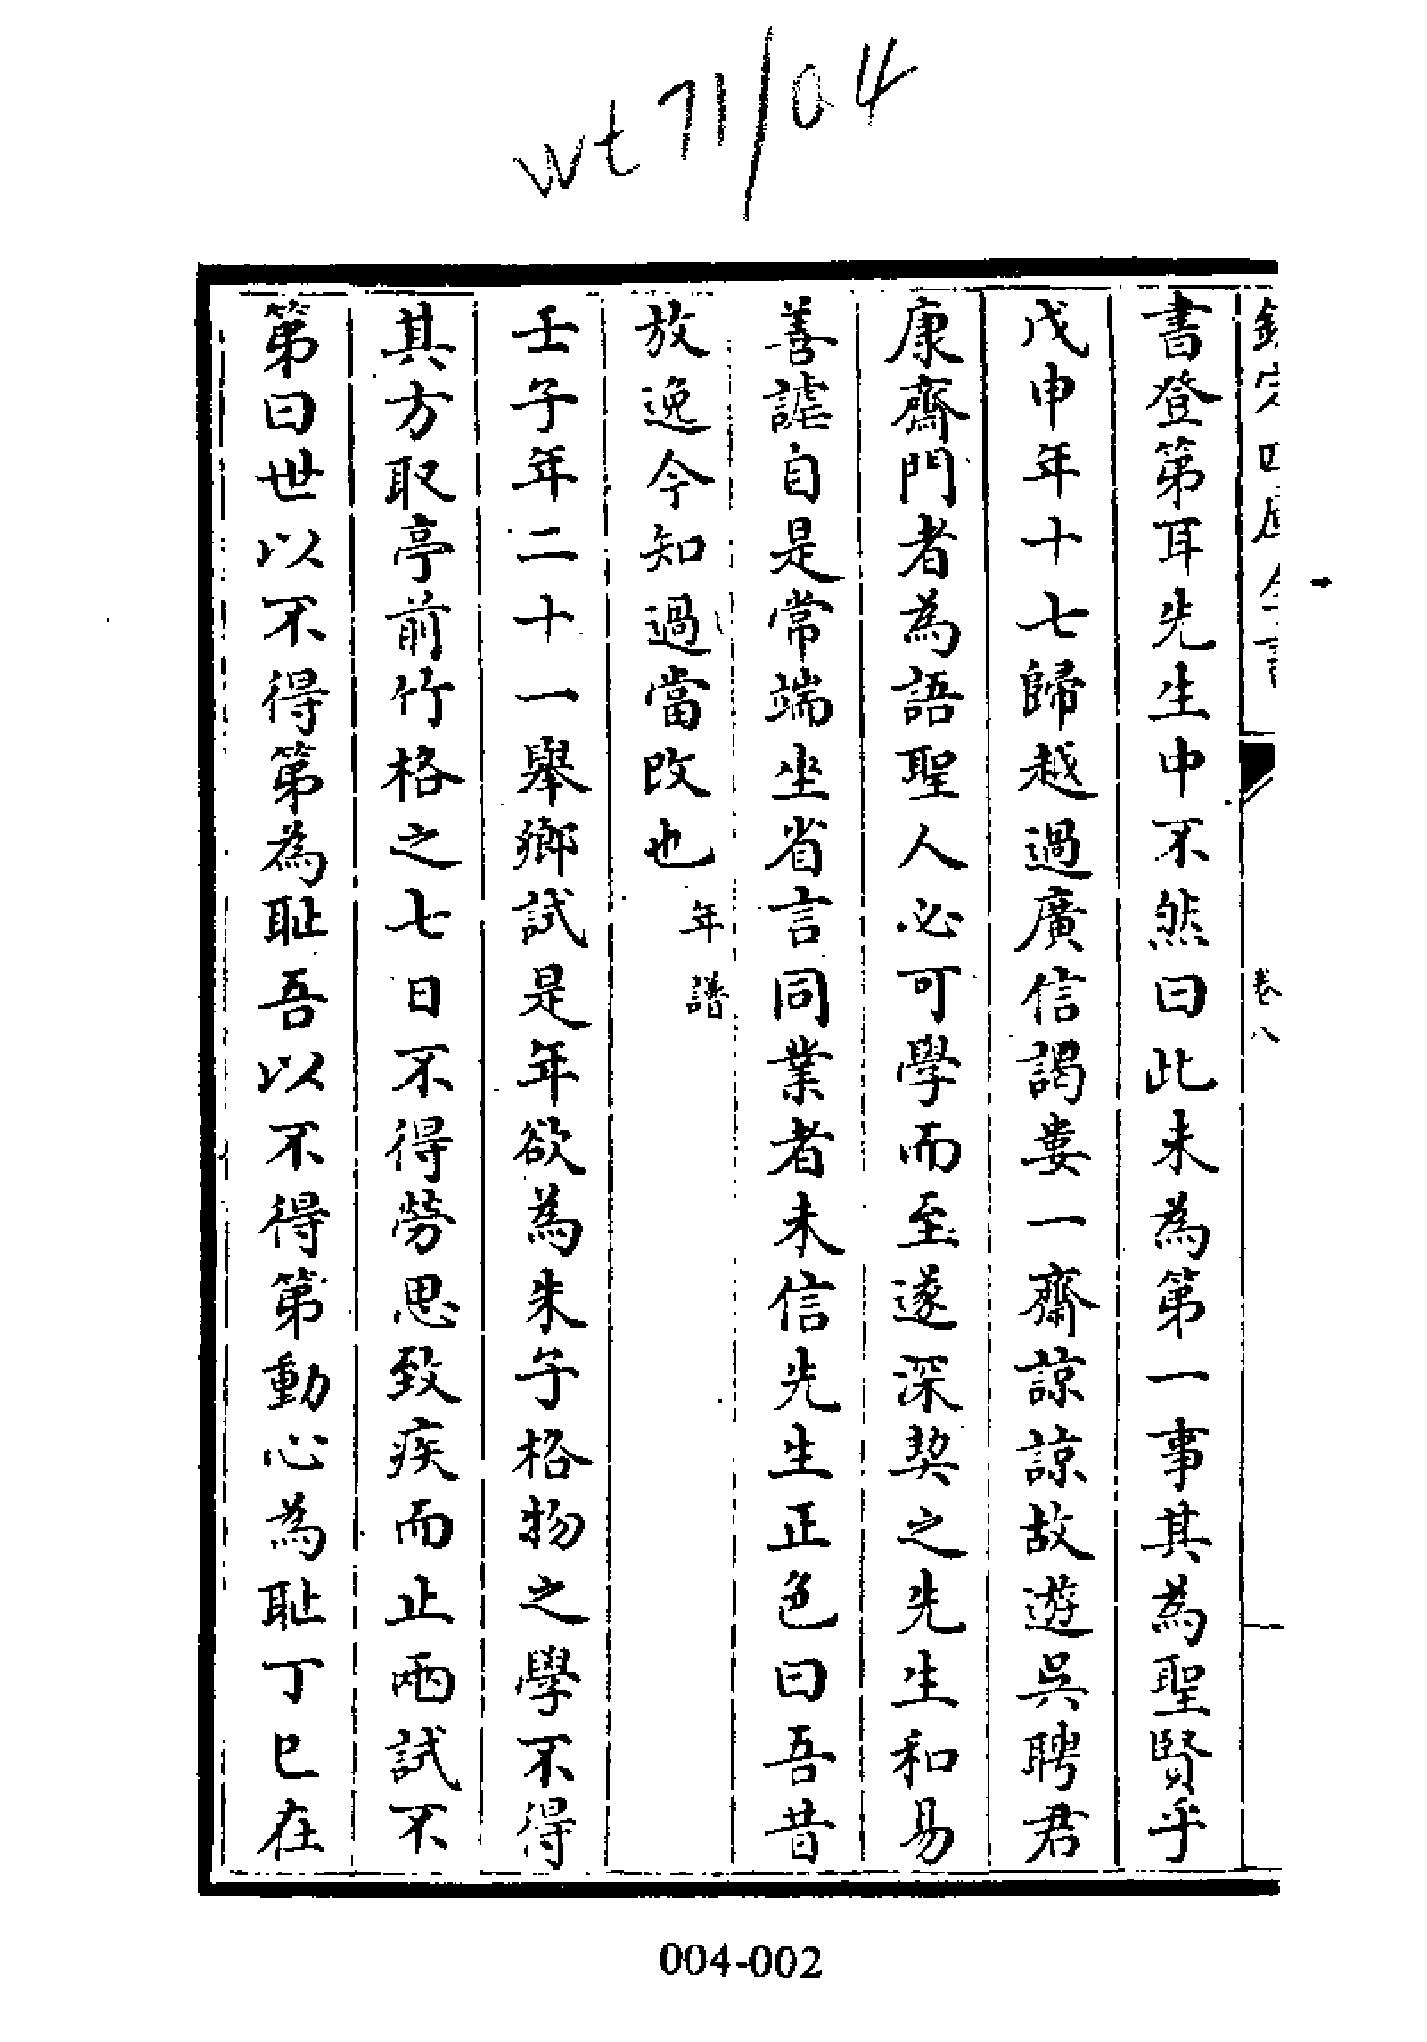 wt 71/04
欽定四庫全書
卷八
書登第耳先生中不然曰此未為第一事其為聖賢乎
戊申年十七歸越過廣信謁婁一齋諒諒故遊吳聘君
康齋門者為語聖人必可學而至遂深契之先生和易
善謔自是常端坐省言同業者未信先生正色曰吾昔
放逸今知過當改也 年譜
壬子年二十一舉鄉試是年欲為朱子格物之學不得
其方取亭前竹格之七日不得勞思致疾而止兩試不
第曰世以不得第為耻吾以不得第動心為耻丁巳在
004-002